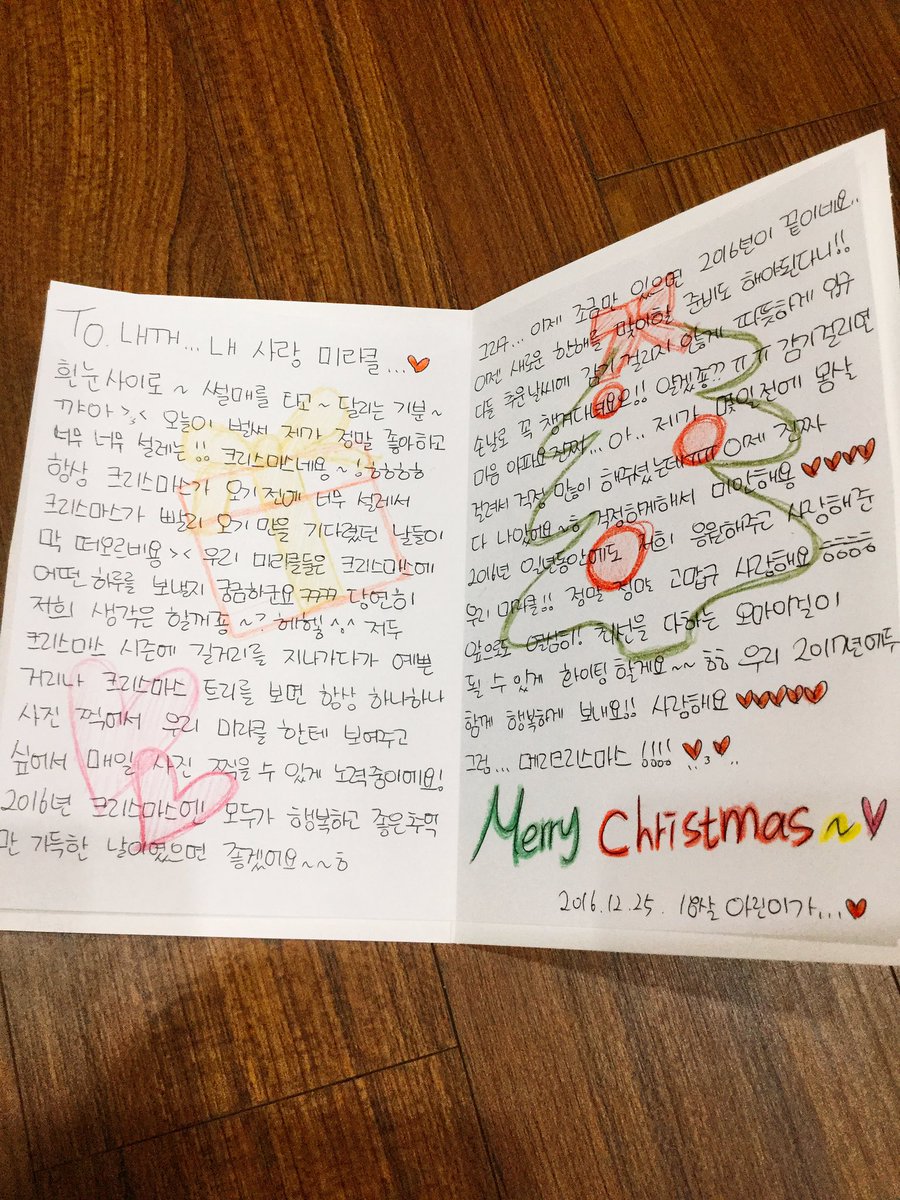 To. 내꺼... 내 사랑 미라클...♥
흰눈 사이로~ 썰매를 타고~ 달리는 기분~
꺄아 >.< 오늘이 벌써 제가 정말 좋아하고
너무 너무 설레는!! 크리스마스네요~! ㅎㅎㅎㅎ
항상 크리스마스가 오기 전에 너무 설레서
크리스마스가 빨리 오기 만을 기다렸던 날들이
막 떠오르비용 >< 우리 미라클들은 크리스마스에
어떤 하루를 보낼지 궁금하군요 ㅋㅋㅋㅋ 당연히
저희 생각은 할꺼죵~? 헤헿 ^^ 저두
크리스마스 시즌에 길거리를 지나가다가 예쁜
거리나 크리스마스 트리를 보면 항상 하나하나
사진 찍어서 우리 미라클 한테 보여주고
싶어서 매일 사진 찍을 수 있게 노력중이에요!
2016년 크리스마스에 모두가 행복하고 좋은추억
만 가득한 날이였으면 좋겠어요~~ㅎ
그리구... 이제 조금만 있으면 2016년이 끝이네요..
이젠 새로운 한해를 맞이할 준비도 해야된다니!!
다들 추운날씨에 감기 걸리지 않게 따뜻하게 입구
손난로 꼭 챙겨다녀요오!! 알겠죵?? ㅠㅠ 감기걸리면
마음 아파요 진짜... 아.. 제가 몇일전에 몸살
걸려서 걱정 많이 해주셨는데ㅠㅠ 이제 진짜
다 나았어요~ㅎ 걱정하게해서 미안해용 ♥♥♥♥
2016년 일년동안에도 저희 응원해주고 사랑해준
우리 미라클!! 정말 정말 고맙구 사랑해요 ㅎㅎㅎㅎ
앞으로도 열심히! 최선을 다하는 오마이걸이
될 수 있게 화이팅 할게요~~ ㅎㅎ 우리 2017년에두
함께 행복하게 보내요!! 사랑해요 ♥♥♥♥♥
그럼... 메리크리스마스 !!!! ♥3♥
Merry Christmas~♥
2016.12.25. 18살 아린이가...♥